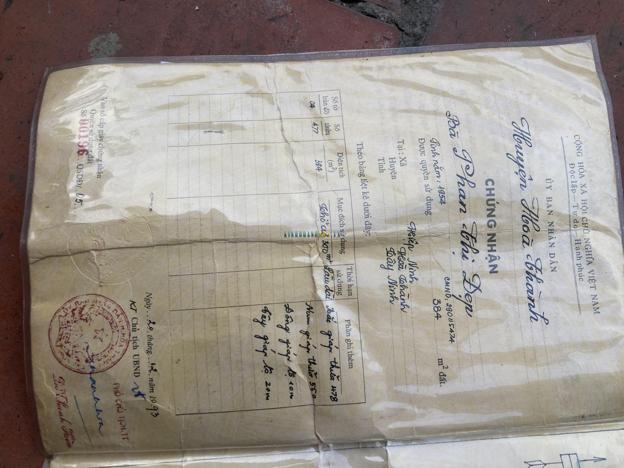 CỘNG HÒA XÃ HỘI CHỦ NGHĨA VIỆT NAM
Độc lập - Tự do - Hạnh phúc
ỦY BAN NHÂN DÂN
Huyện Hoà Thành
CHỨNG NHẬN
Bà Phan Thị Đẹp
Sinh năm: 1954 CMND: 290115434
Được quyền sử dụng 384 m² đất.
Tại: Xã Hiệp Ninh
Huyện Hoà Thành
Tỉnh Tây Ninh
Theo bảng liệt kê dưới đây:
Số tờ bản đồ Số thửa Diện tích (m²) Mục đích sử dụng Thời hạn sử dụng Phần ghi thêm
04 477 384 Thổ cư 300m² Lâu dài Bắc giáp thửa 478
Nam giáp thửa 550
Đông giáp lộ 10m
Tây giáp lộ 20m
Vào sổ cấp giấy chứng nhận
Quyền sử dụng đất
Số 00196 QSDĐ/
Ngày 20 tháng 12 năm 1993
KT Chủ tịch UBND
PHÓ CHỦ TỊCH